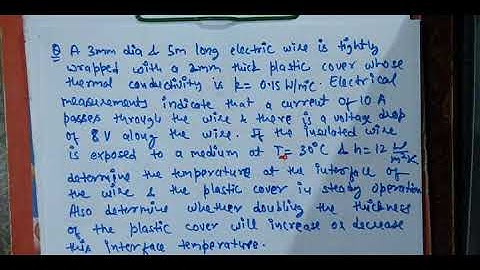 Q A 3mm dia & 5m long electric wire is tightly
wrapped with a 2mm thick plastic cover whose
thermal conductivity is k= 0.15 W/m°c. Electrical
measurements indicate that a current of 10 A
passes through the wire & there is a voltage drop
of 8 V along the wire. If the insulated wire
is exposed to a medium at T∞= 30°C & h = 12 W/m²K
determine the temperature at the interface of
the wire & the plastic cover in steady operation
Also determine whether doubling the thickness
of the plastic cover will increase or decrease
this interface temperature.